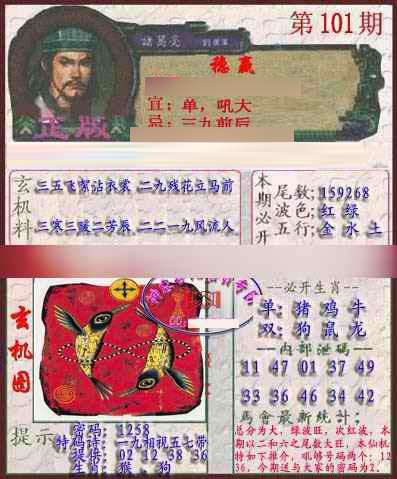 第101期
諸葛亮
穩贏
正版
宜：单，吼大
忌：三九前后
玄机料
三五飞絮沾衣裳 二九残花立马前
三寒三暖二芳辰 二二一九风流人
本期必开
尾数：159268
波色：红 绿
五行：金 水 土
必开生肖
单：猪 鸡 牛
双：狗 鼠 龙
内部泄码
11 47 01 37 49
33 36 46 34 42
馬會最新統计：
总分为大，绿波旺，次红波，本期以二和六之尾数大旺，本仙机特如下推介，吼够号码两个：1236，今期送与大家的密码为2．
玄机图
提示
密码：1258
特码诗：一九相视五七带
提倍：02 12 38 36
生肖：猴．狗